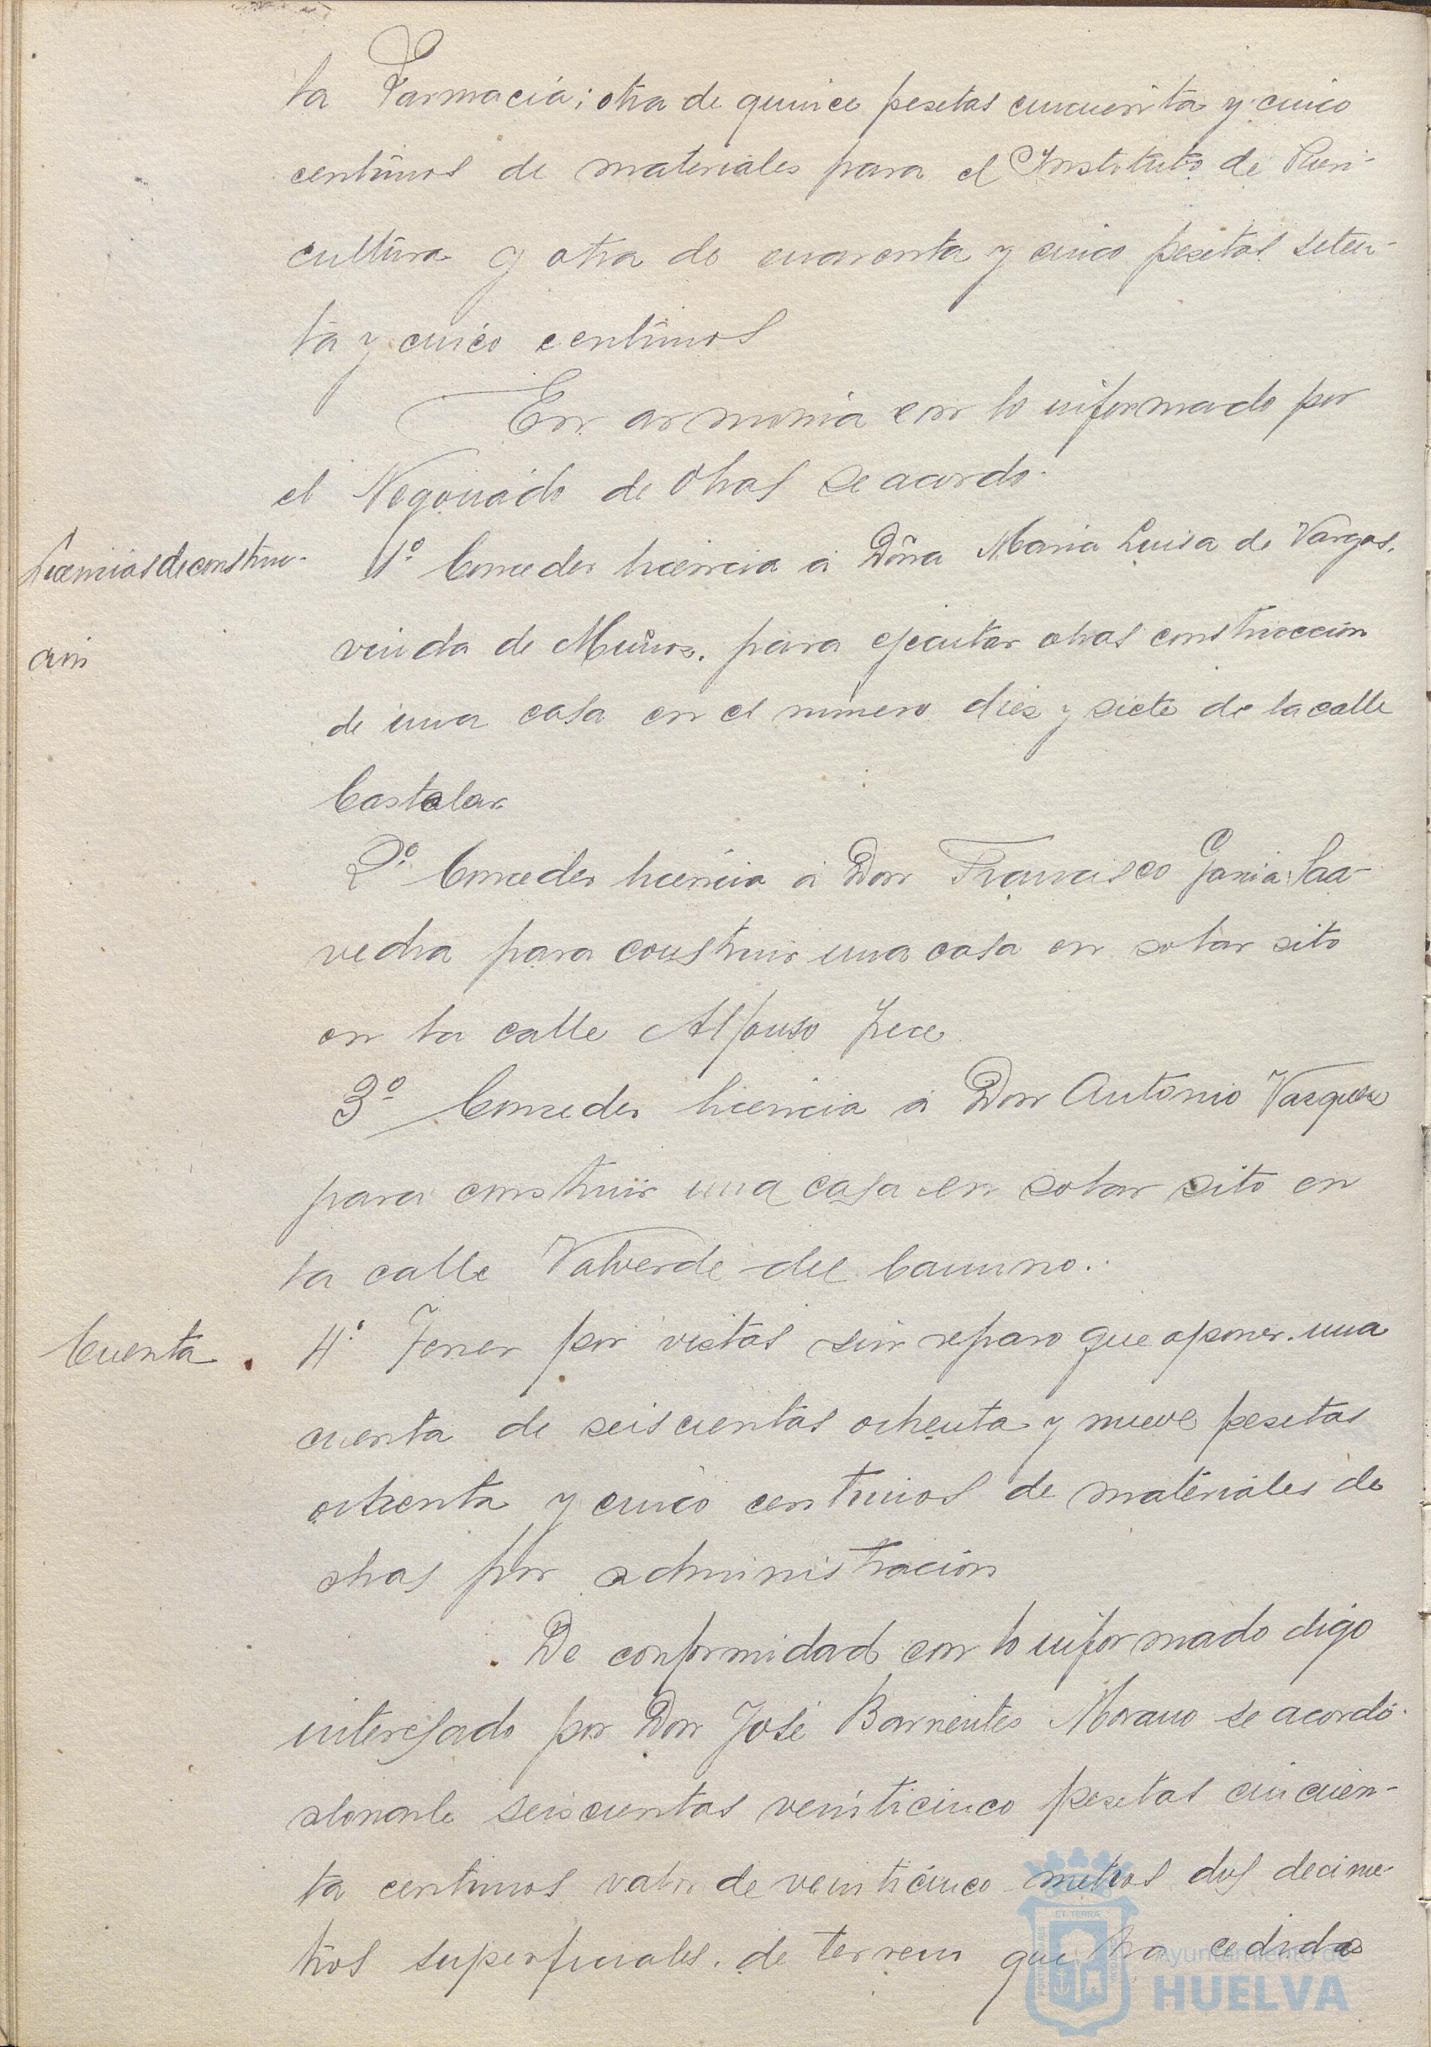 la Farmacia; otra de quince pesetas cincuenta y cinco
centimos de materiales para el Instituto de Pueri-
cultura y otra de cuarenta y cinco pesetas seten-
ta y cinco centimos
En armonia con lo informado por
el Negociado de Obras se acordo.
Licencias de construc-
cion
1º Conceder licencia a Doña Maria Luisa de Vargas,
viuda de Muñoz, para ejecutar obras construccion
de una casa en el número diez y siete de la calle
Castelar
2º Conceder licencia a Don Francisco Garcia Saa-
vedra para construir una casa en solar sito
en la calle Alfonso
3º Conceder licencia a Don Antonio Vazquez
para construir una casa en solar sito en
la calle Valverde del Camino.
Cuenta
4º Tener por vistas sin reparo que oponer una
cuenta de seiscientas ochenta y nueve pesetas
ochenta y cinco centimos de materiales de
obras por administracion
De conformidad con lo informado digo
interesado por Don José Barrientos Morano se acordó
abonarle seiscientas veinticinco pesetas cincuen-
ta centimos valor de veinticinco metros dos decime-
tros superficiales de terreno que ha cedido
Ayuntamiento de
HUELVA